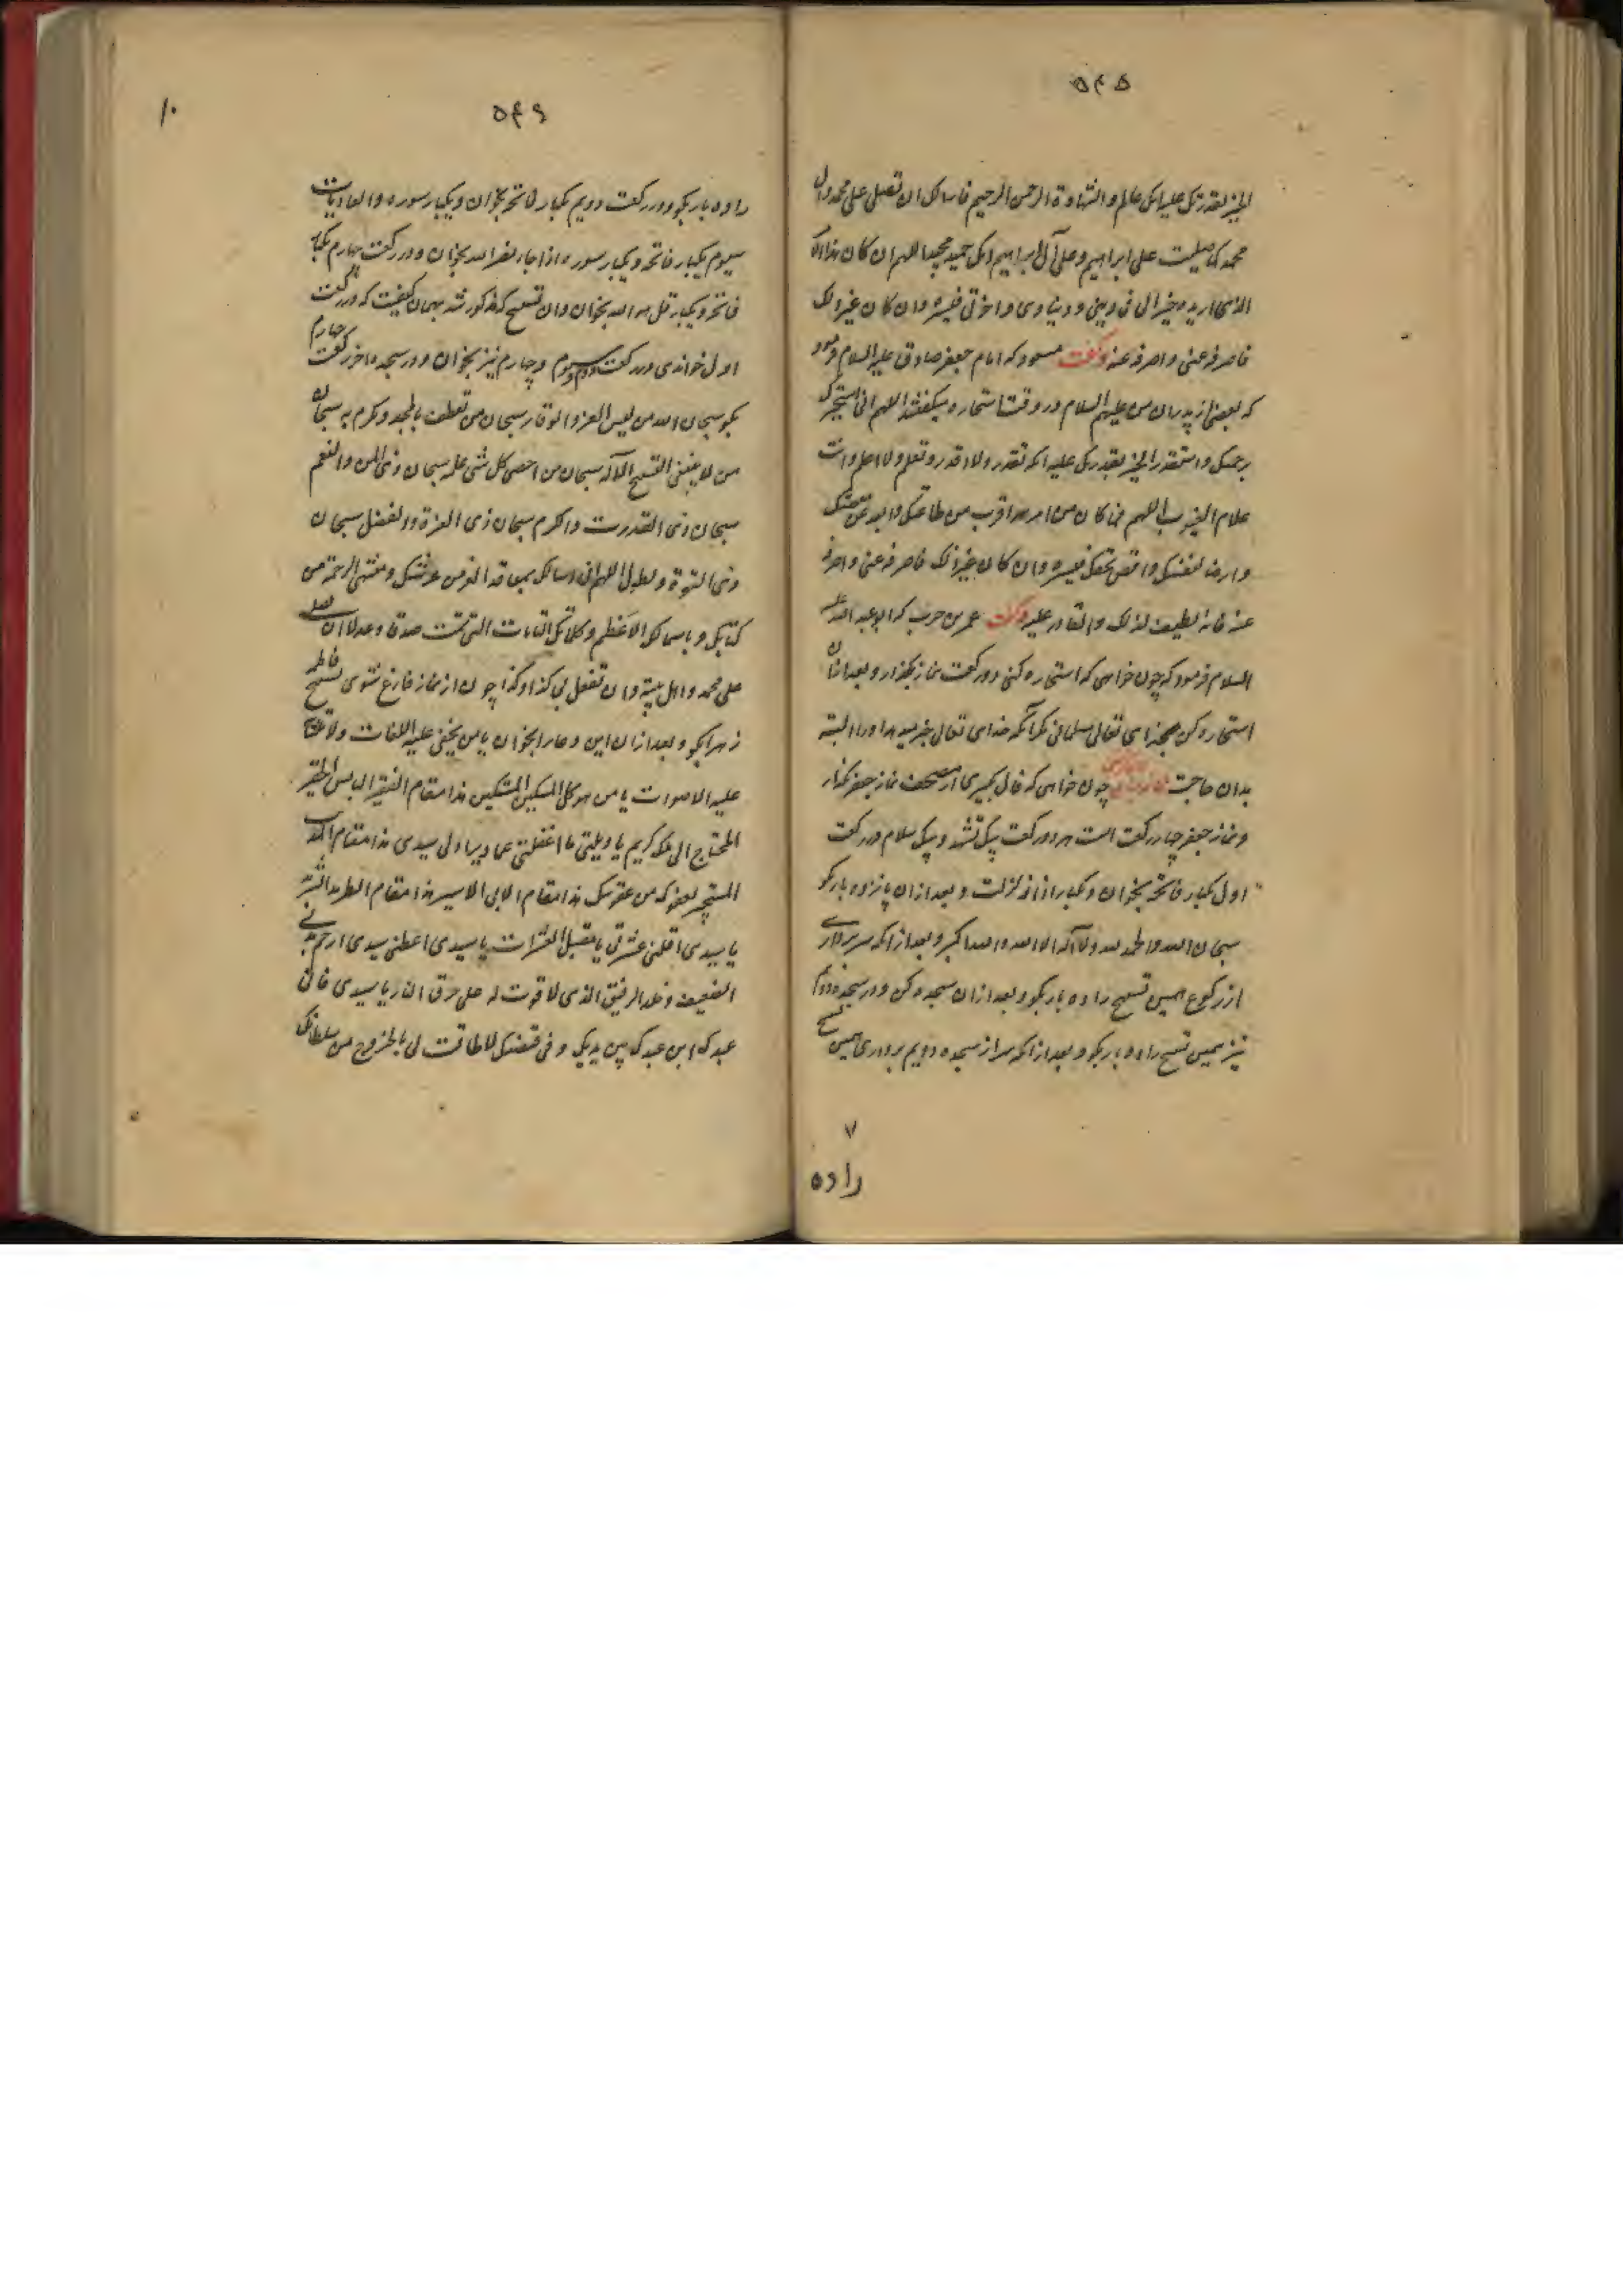 ۵۴۵
الخیر بقدرتک علیه انک عالم والشهادة الرحمن الرحیم فاسالک ان تصلی علی محمد وال
محمد کما صلیت علی ابراهیم وعلی آل ابراهیم انک حمید مجید اللهم ان کان هذا الامر
الذی اریده خیرا لی فی دینی و دنیای واخرتی فیسره وان کان غیر ذلک
فاصرفه عنی واصرفنی عنه وگفت مسعود که امام جعفر صادق علیه السلام فرمود
که بعضی از پدران من علیهم السلام در وقت استخاره میگفتند اللهم انی استخیرک
برحمتک واستقدر الخیر بقدرتک علیه انک تقدر ولا اقدر وتعلم ولا اعلم وانت
علام الغیوب اللهم فما کان من امر هو اقرب من طاعتک وابعد من
وارضا لنفسک واقض بحقک فیسره وان کان غیر ذلک فاصرفه عنی واصرفنی
عنه فانه لطیف لذلک والقادر علیه وگفت عمر بن حرب که ابو عبد الله علیه
السلام فرمود که چون خواهی که استخاره کنی دو رکعت نماز بگذار و بعد از ان
استخاره کن بخدای تعالی مسلمانی مگر آنکه خدای تعالی خیر بیند او را البته
بدان حاجت چون خواهی که فال گیری از مصحف نماز جعفر بگذار
و نماز جعفر چهار رکعت است هر دو رکعت بیک تشهد و بیک سلام در رکعت
اول یکبار فاتحه بخوان و یکبار اذا زلزلت و بعد از ان پانزده بار بگو
سبحان الله والحمد لله ولا اله الا الله والله اکبر و بعد از انکه سر برداری
از رکوع همین تسبیح را ده بار بگو و بعد از ان سجده کن و در سجده دوم
نیز همین تسبیح را ده بار بگو و بعد از انکه سر از سجده دویم برداری همین تسبیح
۷
را ده
۵۴۶
۱۰
را ده بار بگو و در رکعت دویم یکبار فاتحه بخوان و یکبار سوره والعادیات
سیوم یکبار فاتحه و یکبار سوره اذا جاء نصر الله بخوان و در رکعت چهارم یکبار
فاتحه و یکبار قل هو الله بخوان وان تسبیح که مذکور شد بهمان کیفیت که در رکعت
اول خواندی در رکعت دوم و سیوم و چهارم نیز بخوان و در سجده اخر رکعت چهارم
بگو سبحان الله من لبس العز والوقار سبحان من تعطف بالمجد وتکرم به سبحان
من لا ینبغی التسبیح الا له سبحان من احصی کل شی علمه سبحان ذی المن والنعم
سبحان ذی القدرت والکرم سبحان ذی العزة والفضل سبحان
ذی القوة والطول اللهم انی اسالک بمعاقد العز من عرشک ومنتهی الرحمة من
کتابک وباسمائک الاعظم وکلماتک التامات التی تمت صدقا وعدلا ان تصلی
علی محمد واهل بیته وان تفعل بی کذا وکذا چون از نماز فارغ شوی تسبیح فاطمه
زهرا بگو و بعد از ان این دعا را بخوان یا من یخفی علیه اللغات ولا
علیه الاصوات یا من هو کل المسکین المسکین هذا مقام الفقیر البایس الحقیر
المحتاج الی ملک کریم یا ویلتی ما اغفلتی عما سیدی هذا مقام
المستجیر بعفوک من عقوبتک هذا مقام الاسیر هذا مقام الطرید الشرید
یا سیدی اقلنی عثرتی یا مقیل العثرات یا سیدی اعطنی سیدی ارحم بدنی
الضعیف وجلد الرقیق الذی لا قوت له علی حرق النار یا سیدی فانی
عبدک ابن عبدک بین یدیک وفی قبضتک لا طاقت لی بالخروج من سلطانک